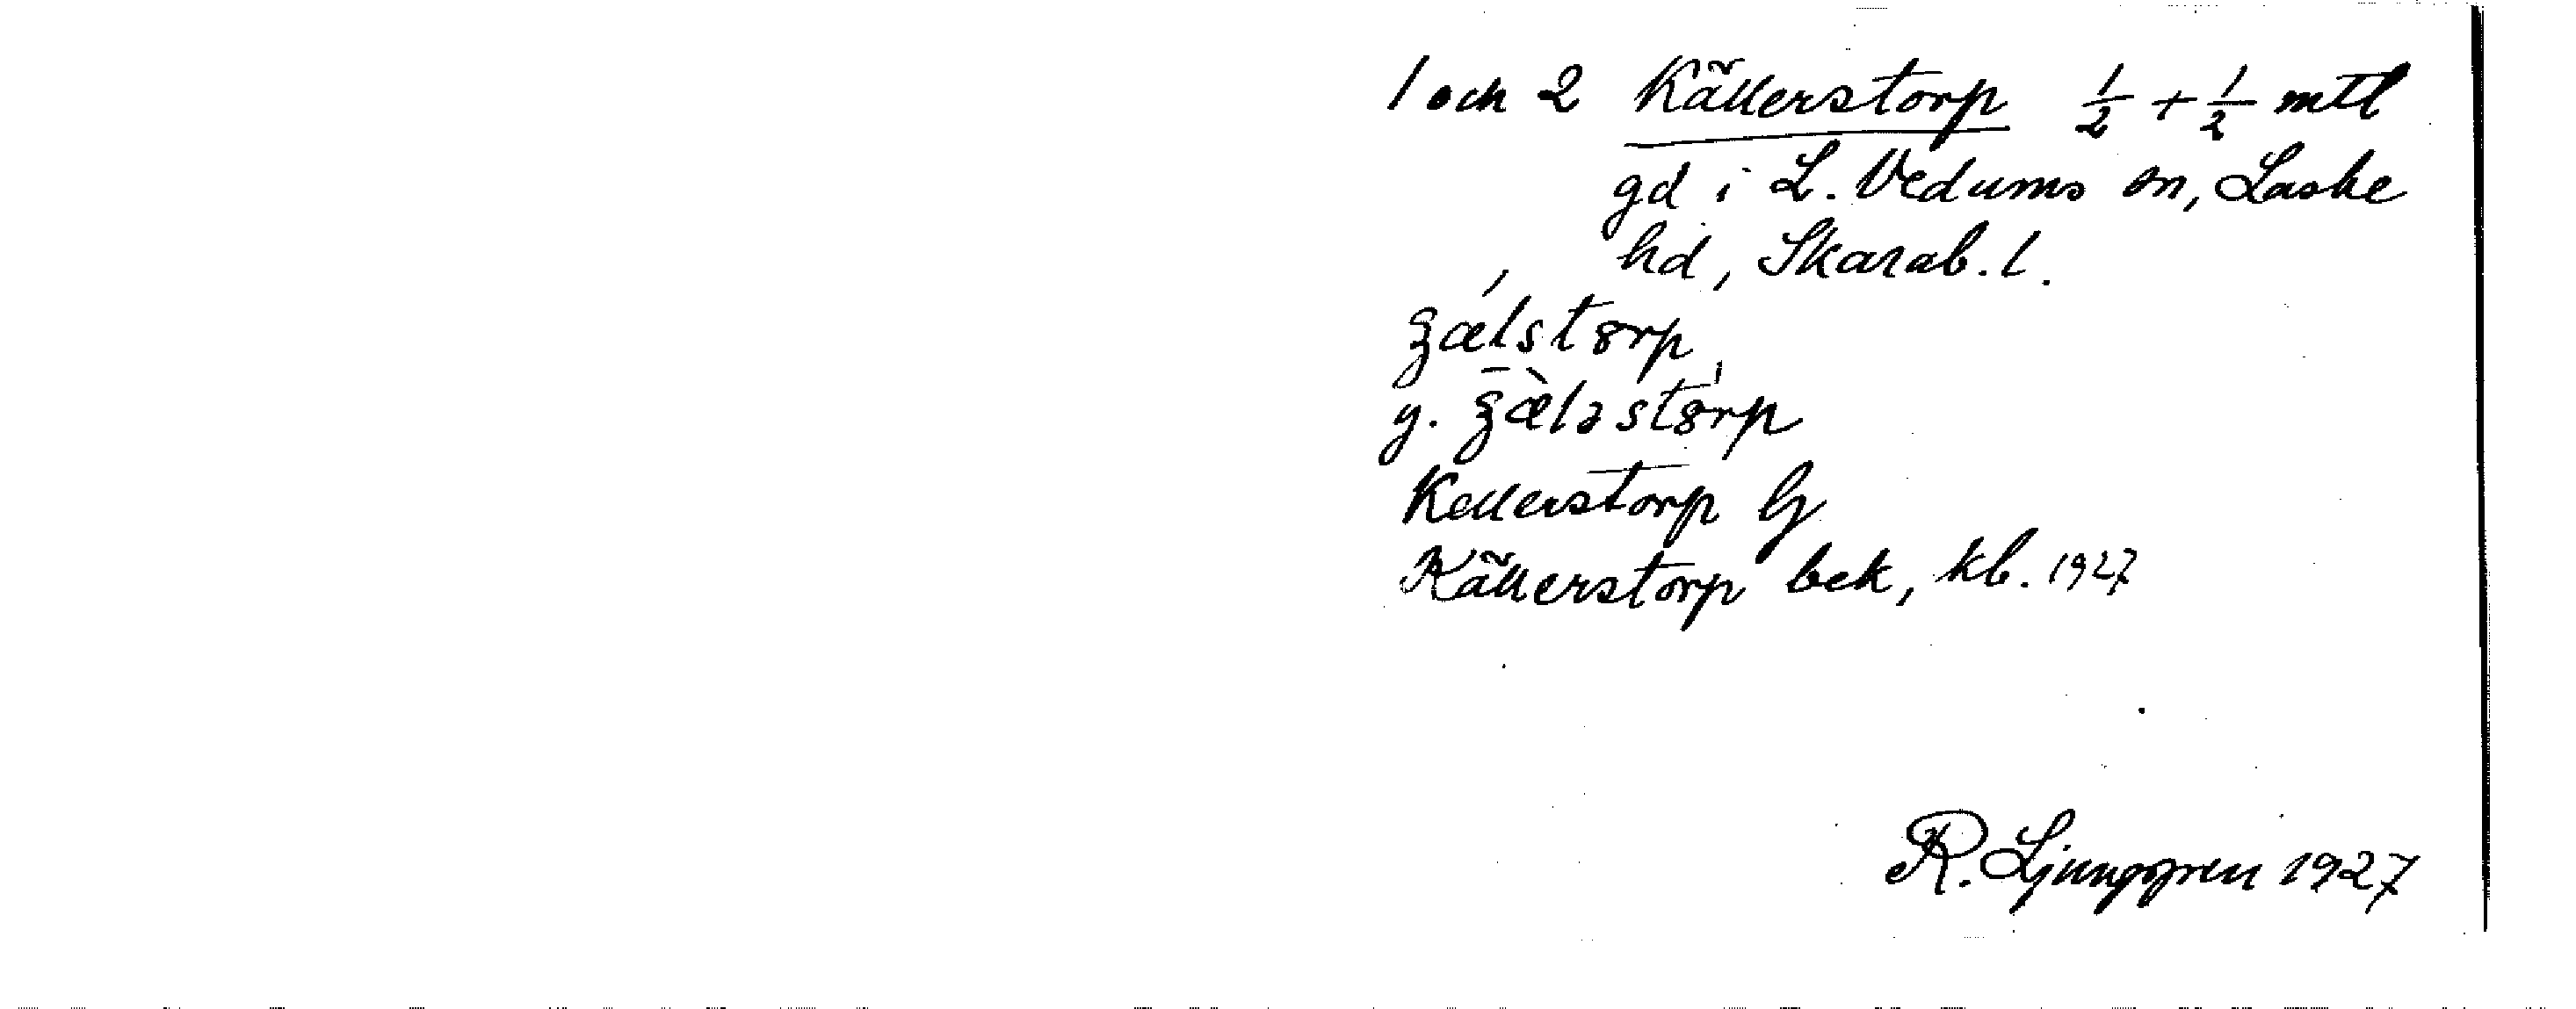 1 och 2 Källerstorp 1/2 + 1/2 mtl
gd i L. Vedums sn, Laske
hd, Skarab. l.
y.
Kellerstorp G
Källerstorp bek, kb. 1927
R. Ljunggren 1927